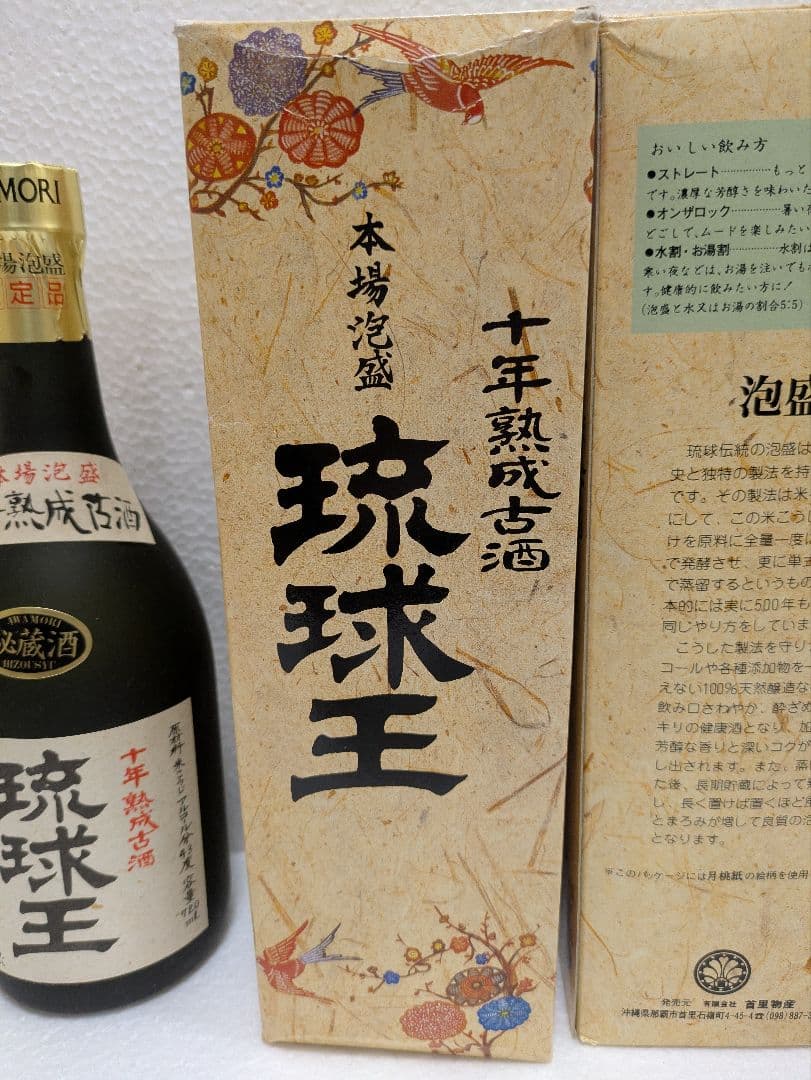 MORI
場泡盛
定品
本場泡盛
熟成古酒
AWAMORI
秘蔵酒
HIZOUSYU
琉球王
十年熟成古酒
原材料 米こうじ アルコール分43度 容量720mL
本場泡盛
十年熟成古酒
琉球王
おいしい飲み方
●ストレート……………もっと
です。濃厚な芳醇さを味わいた
●オンザロック……………暑い夜
どごして、ムードを楽しみたい
●水割・お湯割……………水割は
寒い夜などは、お湯を注いでも
す。健康的に飲みたい方に!
(泡盛と水又はお湯の割合5:5)
泡盛
琉球伝統の泡盛は
史と独特の製法を持
です。その製法は米
にして、この米こう
けを原料に全量一度に
で発酵させ、更に単式
で蒸留するというもの
本的には実に500年も
同じやり方をしていま
こうした製法を守り
コールや各種添加物を一
えない100%天然醸造な
飲み口さわやか、酔ざめ
キリの健康酒となり、加
芳醇な香りと深いコクが
し出されます。また、蒸
た後、長期貯蔵によって
し、長く置けば置くほど
とまろみが増して良質の
となります。
※このパッケージには月桃紙の絵柄を使用
発売元 有限会社 首里物産
沖縄県那覇市首里石嶺町4-45-4☎(098)887-3